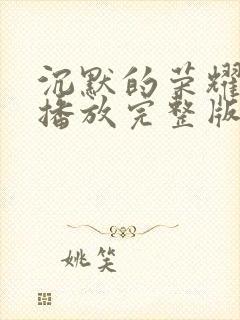 沉默的荣耀
播放完整版
姚笑